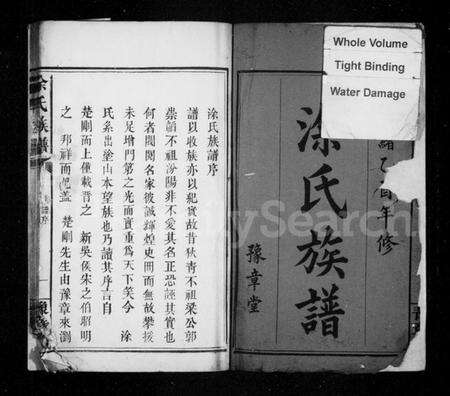 Whole Volume
Tight Binding
Water Damage
緒乙酉年修
涂氏族譜
豫章堂
涂氏族譜序
譜以收族亦以紀實故昔狄青不祖梁公郭
崇韜不祖汾陽非不愛其名正恐誣其實也
何者閥閱名家彼誠輝煌史冊而無故攀援
未足增門第之光而實重為天下笑今 涂
氏系出塗山本望族也乃讀其序言自
楚剛而上僅載晉之 新吳侯宋之伯昭明
之 邦祥而已蓋 楚剛先生由豫章來瀏
涂氏族譜